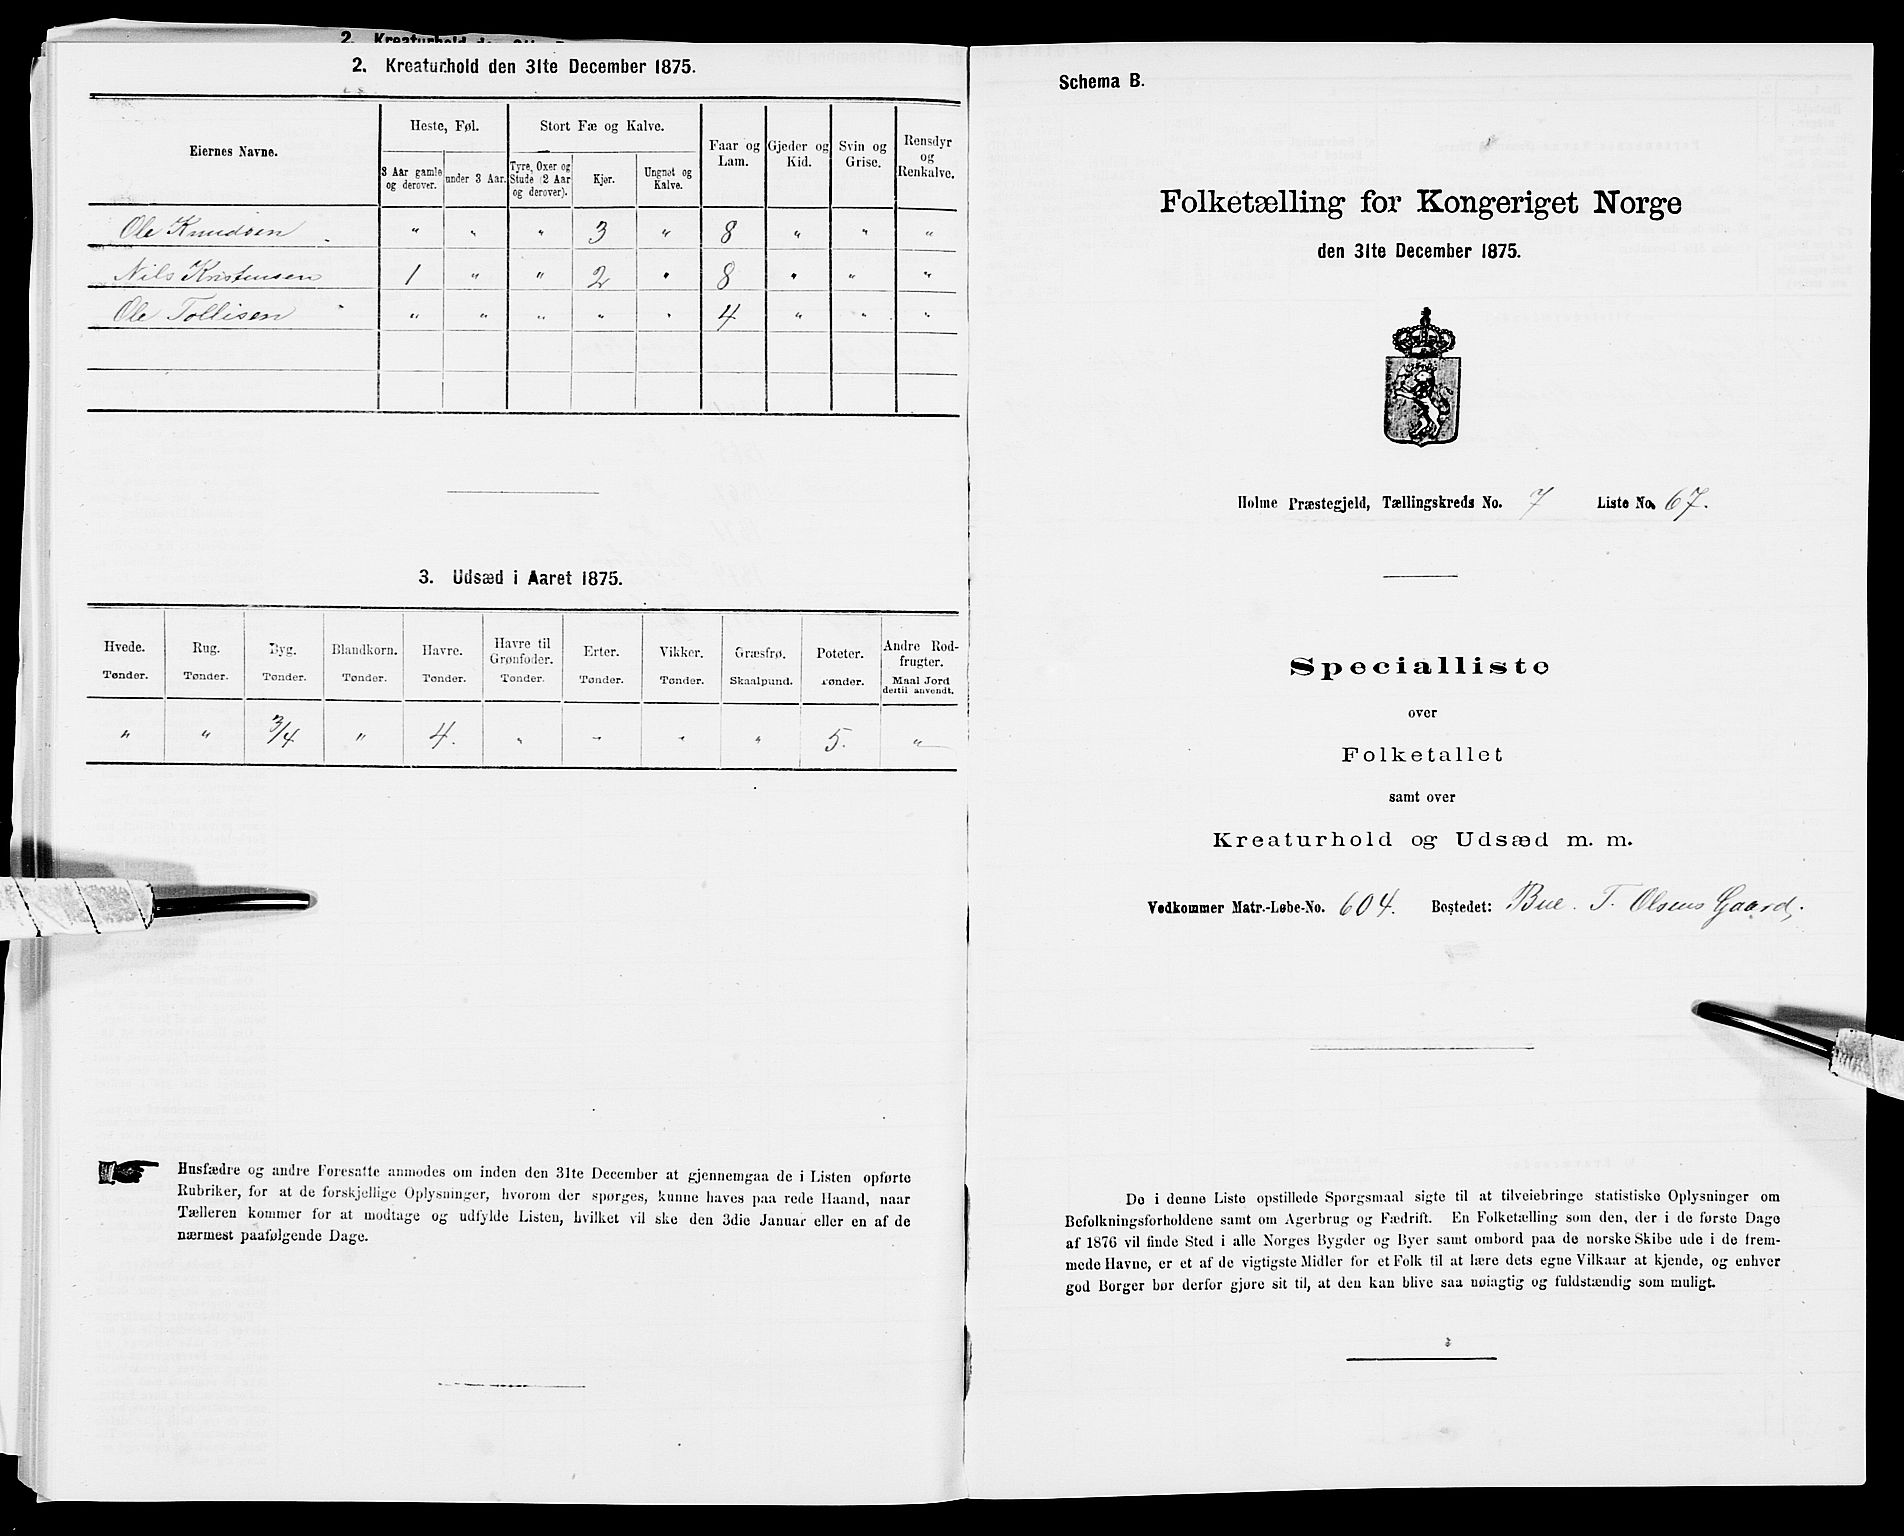 2. Kreaturhold den 31te December 1875.
Eiernes Navne.
Heste, Føl.
Stort Fæ og Kalve.
Faar og Lam.
Gjeder og Kid.
Svin og Grise.
Rensdyr og Renkalve.
3 Aar gamle og derover.
under 3 Aar.
Tyre, Oxer og Stude (2 Aar og derover).
Kjør.
Ungnøt og Kalve.
Ole Knudsen " " " 3 " 8 " " "
Nils Kristensen 1 " " 2 " 8 " " "
Ole Tollisen " " " " " 4 " " "
3. Udsæd i Aaret 1875.
Hvede. Rug. Byg. Blandkorn. Havre. Havre til Grønfoder. Erter. Vikker. Græsfrø. Poteter. Andre Rodfrugter.
Tønder. Tønder. Tønder. Tønder. Tønder. Tønder. Tønder. Tønder. Skaalpund. Tønder. Maal Jord dertil anvendt.
" " 3/4 " 4. " " " " 5. "
Husfædre og andre Foresatte anmodes om inden den 31te December at gjennemgaa de i Listen opførte
Rubriker, for at de forskjellige Oplysninger, hvorom der spørges, kunne haves paa rede Haand, naar
Tælleren kommer for at modtage og udfylde Listen, hvilket vil ske den 3die Januar eller en af de
nærmest paafølgende Dage.
Schema B.
Folketælling for Kongeriget Norge
den 31te December 1875.
Holme Præstegjeld, Tællingskreds No. 7 Liste No. 67.
Specialliste
over
Folketallet
samt over
Kreaturhold og Udsæd m. m.
Vedkommer Matr.-Løbe-No. 604. Bostedet: Bue. T. Olsens Gaard,
De i denne Liste opstillede Spørgsmaal sigte til at tilveiebringe statistiske Oplysninger om
Befolkningsforholdene samt om Agerbrug og Fædrift. En Folketælling som den, der i de første Dage
af 1876 vil finde Sted i alle Norges Bygder og Byer samt ombord paa de norske Skibe ude i de frem-
mede Havne, er et af de vigtigste Midler for et Folk til at lære dets egne Vilkaar at kjende, og enhver
god Borger bør derfor gjøre sit til, at den kan blive saa nøiagtig og fuldstændig som muligt.